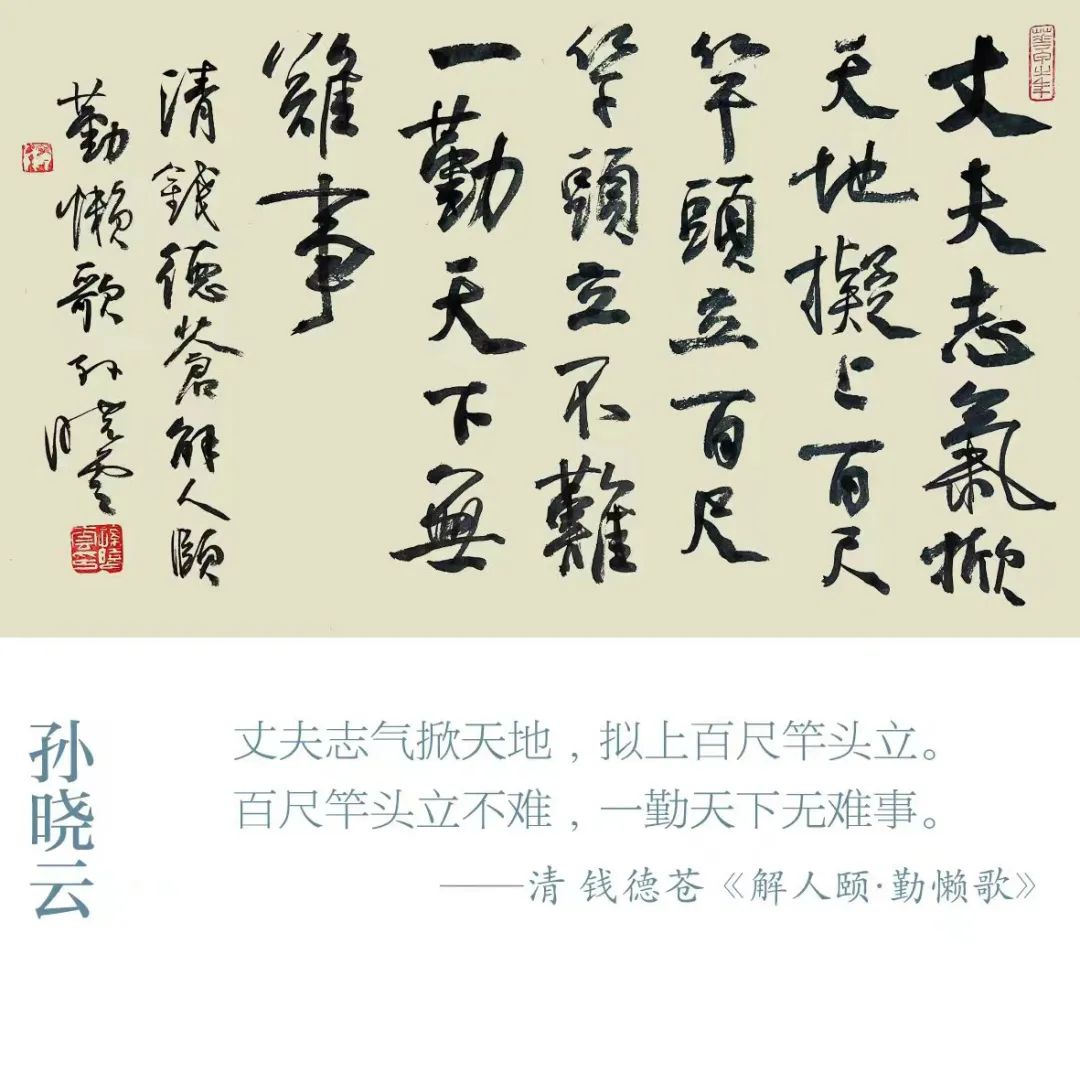 丈夫志氣掀
天地擬上百尺
竿頭立百尺
竿頭立不難
一勤天下無
難事
清錢德蒼解人頤
勤懶歌孙晓雲
孙晓云
丈夫志气掀天地，拟上百尺竿头立。
百尺竿头立不难，一勤天下无难事。
——清 钱德苍《解人颐·勤懒歌》